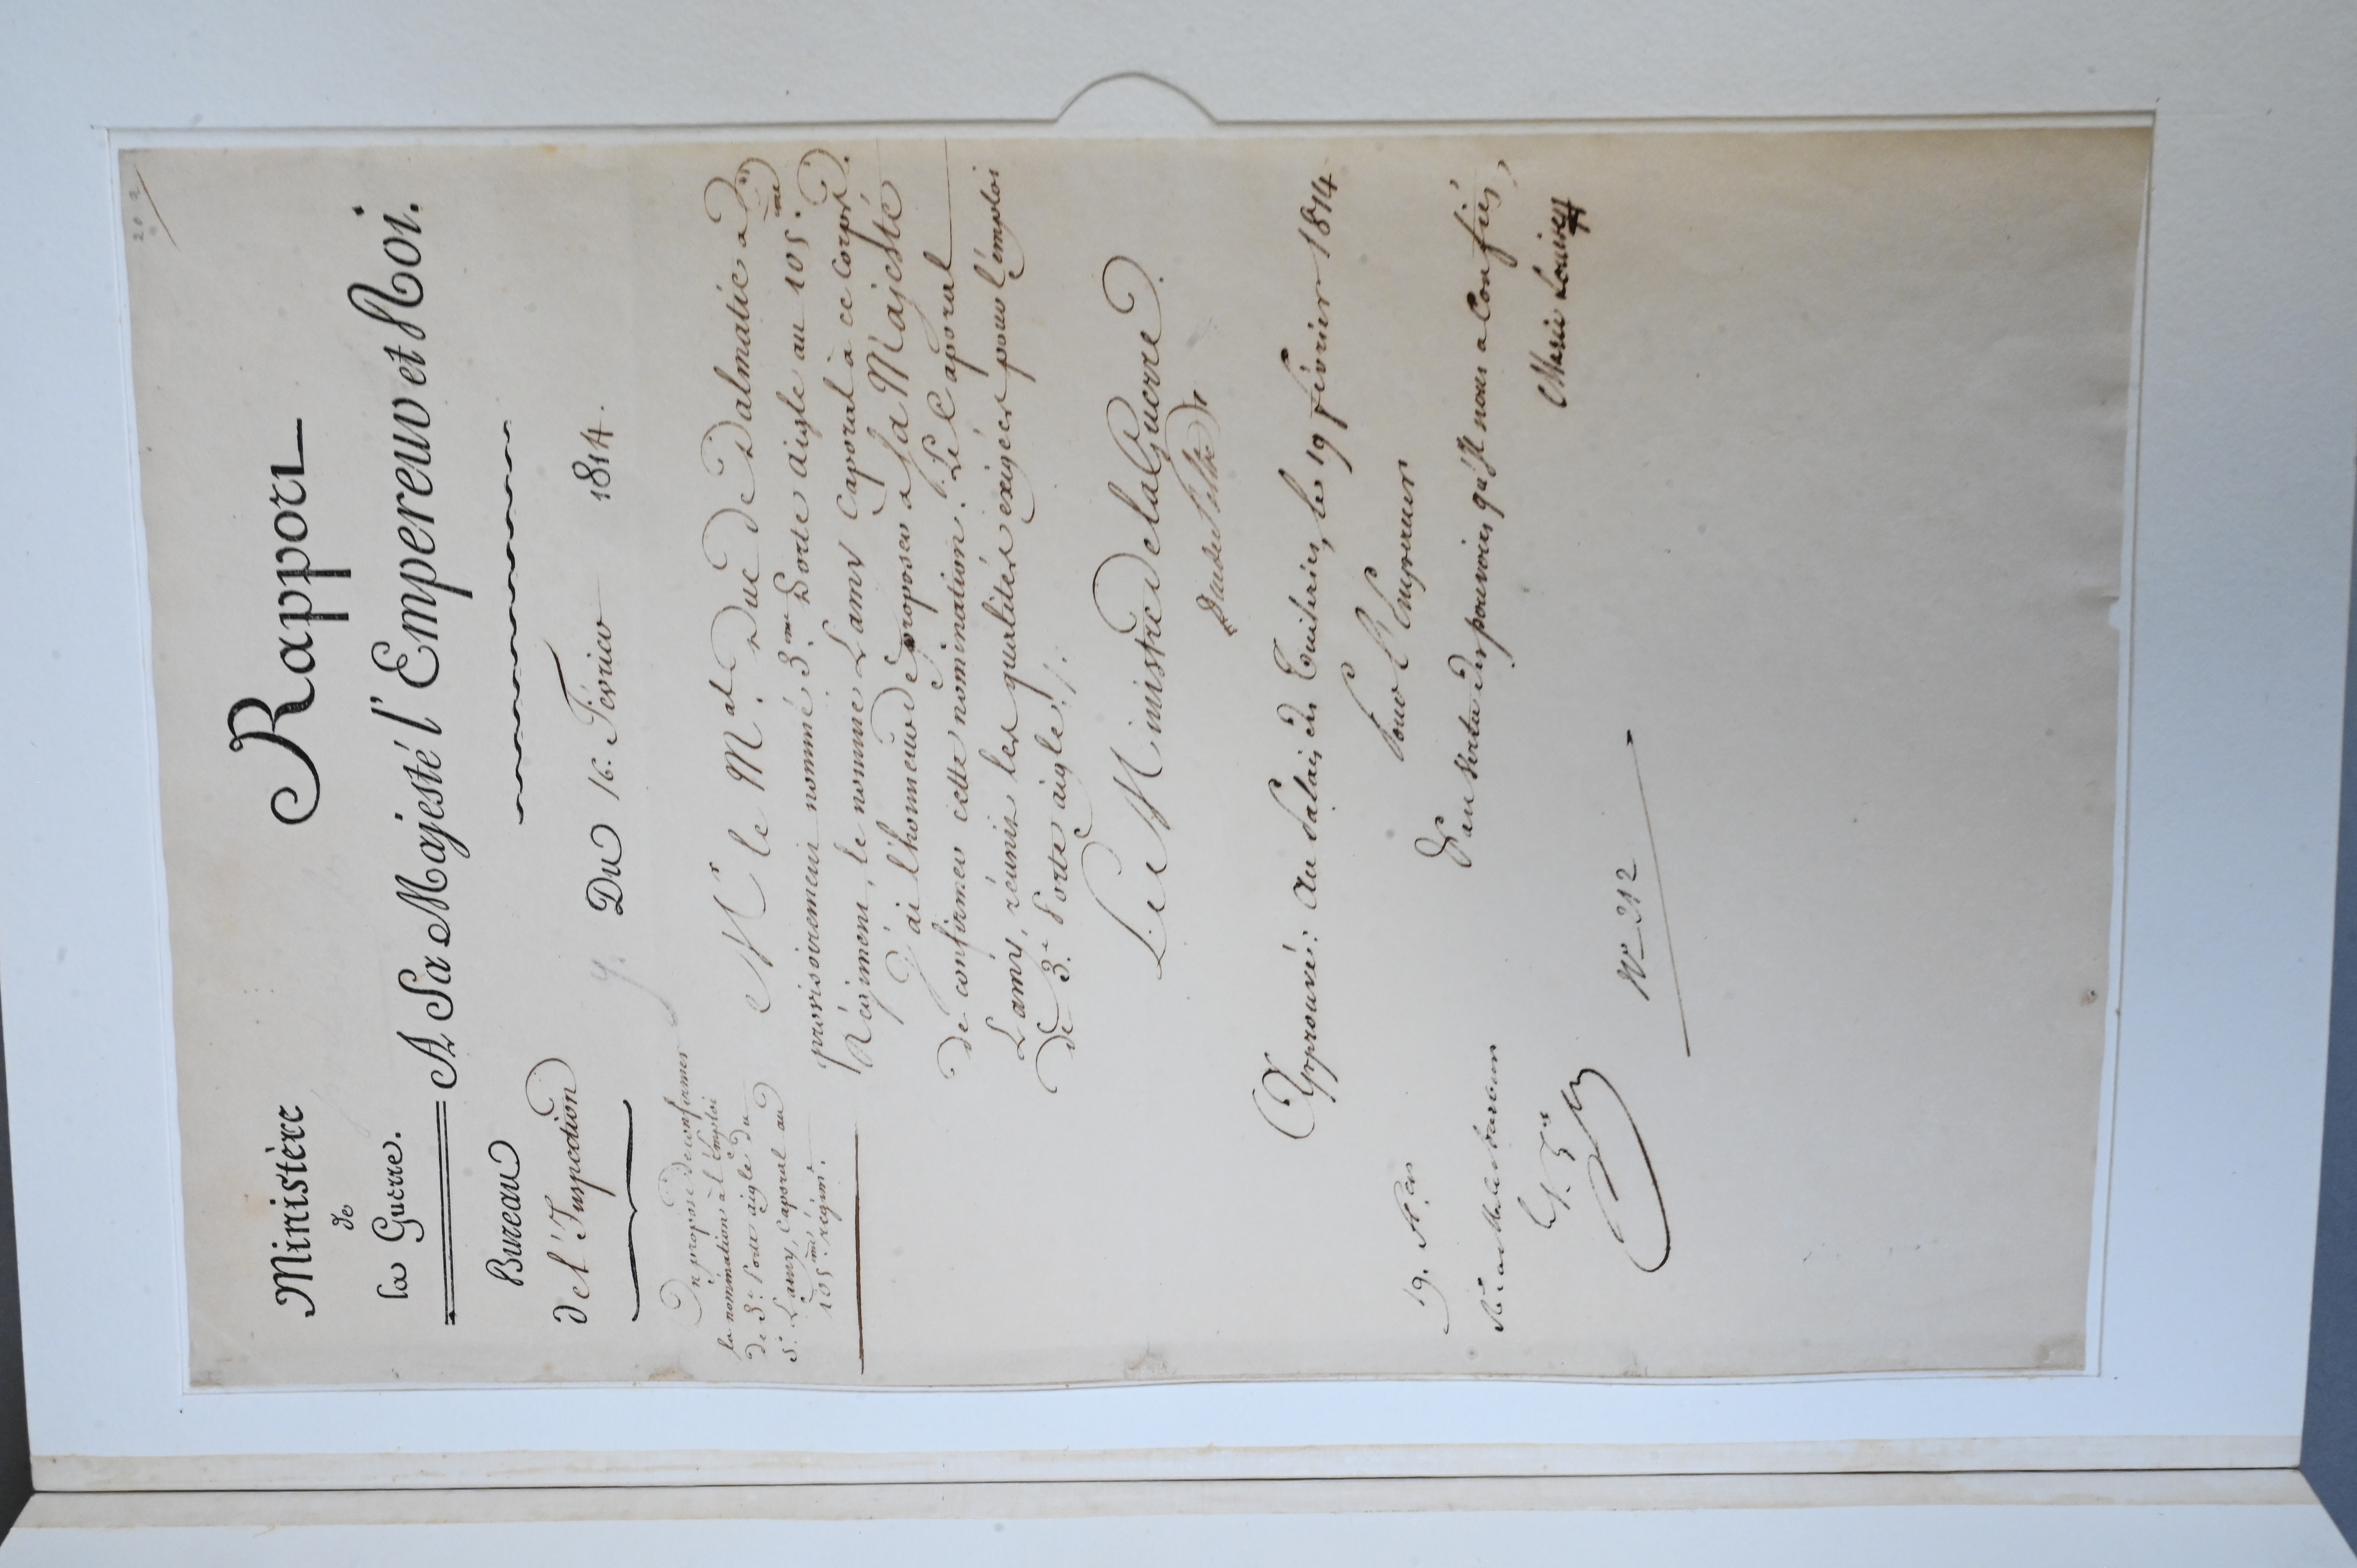 Ministère
de
la Guerre.
Bureau
de l'Inspection
Rapport
A Sa Majesté l'Empereur et Roi.
Du 16. Février 1814.
On propose de confirmer
la nomination à l'Emploi
de 3.e Porte aigle du
S.r Lamy, Caporal au
105.me régim.t
M.r le M.al Duc de Dalmatie a
provisoirement nommé 3.me Porte aigle au 105.me
Régiment, le nommé Lamy Caporal à ce Corps.
J'ai l'honneur de proposer a sa Majesté
de confirmer cette nomination. Le Caporal
Lamy, réunit les qualités exigées pour l'emploi
de 3.e Porte aigle./.
Le Ministre de la Guerre
Duc de Feltre
Approuvé: Au Palais des Tuileries, le 19 Février 1814
Pour l'Empereur
Et en vertu des pouvoirs qu'Il nous a Confiés,
Marie Louise
19. f.er
N° 212
202